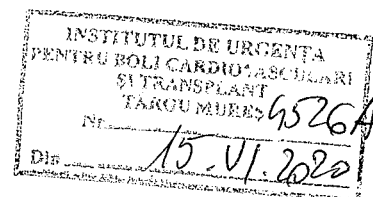 INSTITUTUL DE URGENTA
PENTRU BOLI CARDIOVASCULARI
ŞI TRANSPLANT
TÂRGU MUREŞ
Nr. 4526A
Din 15.VI.2020